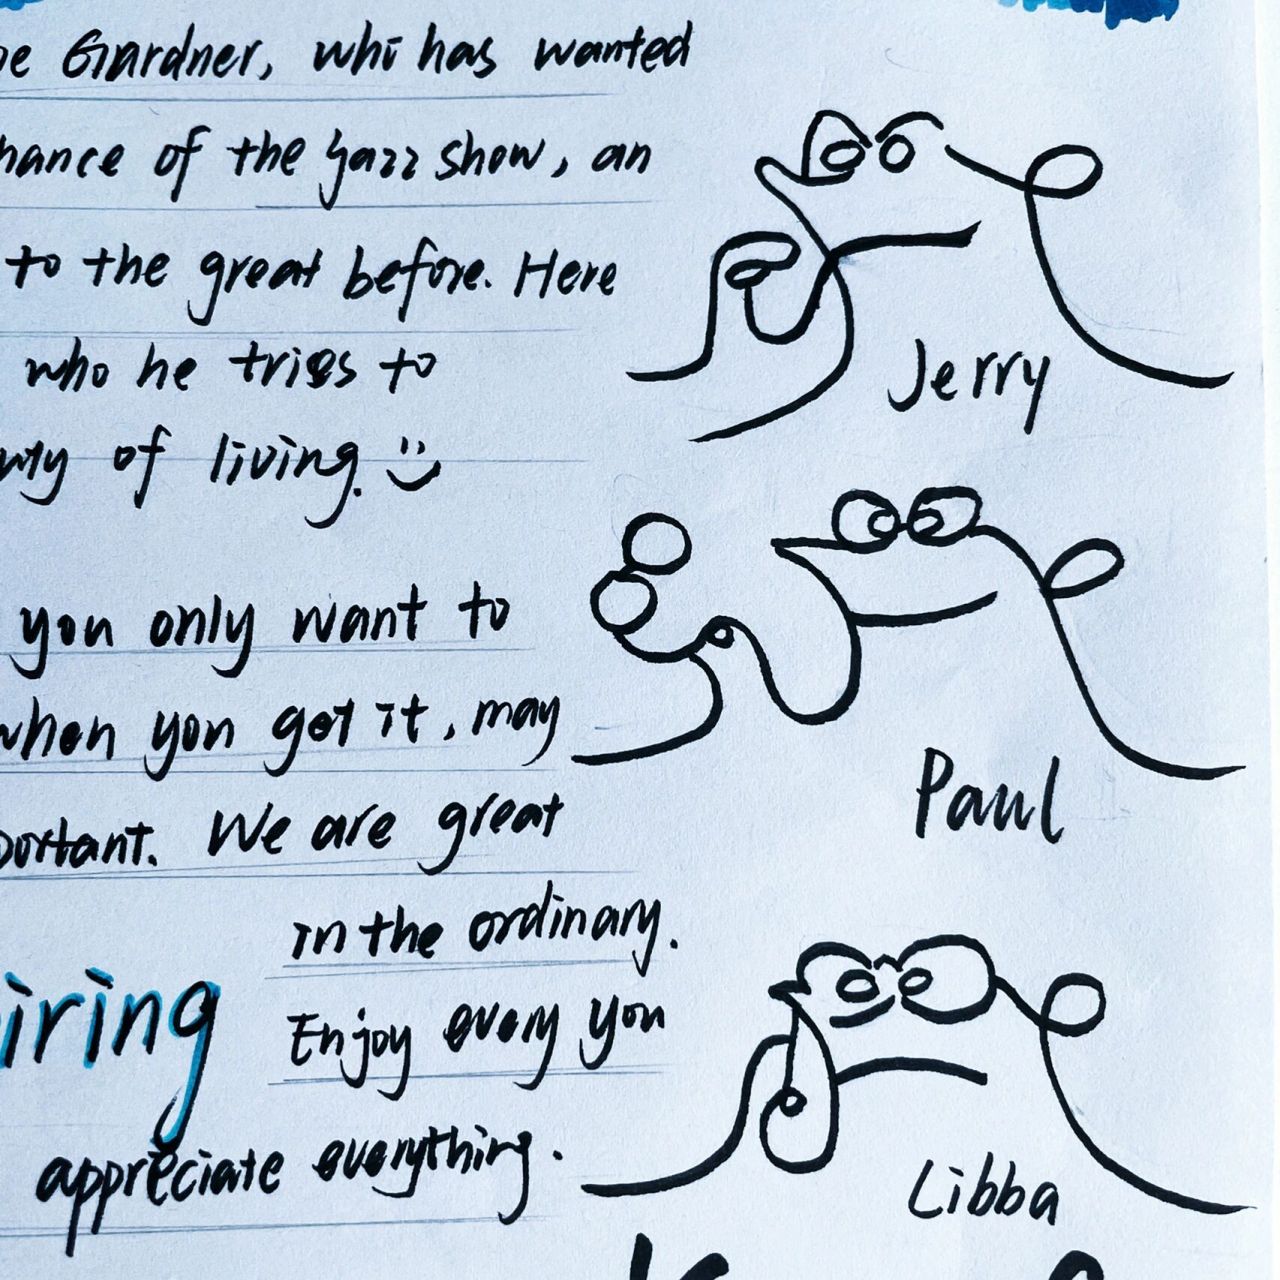 oe Gardner, whi has wanted
hance of the jazz show, an
to the great before. Here
who he tries to
of living.
you only want to
when you get it, may
portant. We are great
in the ordinary.
Enjoy every you
iring
appreciate everything.
Jerry
Paul
Libba